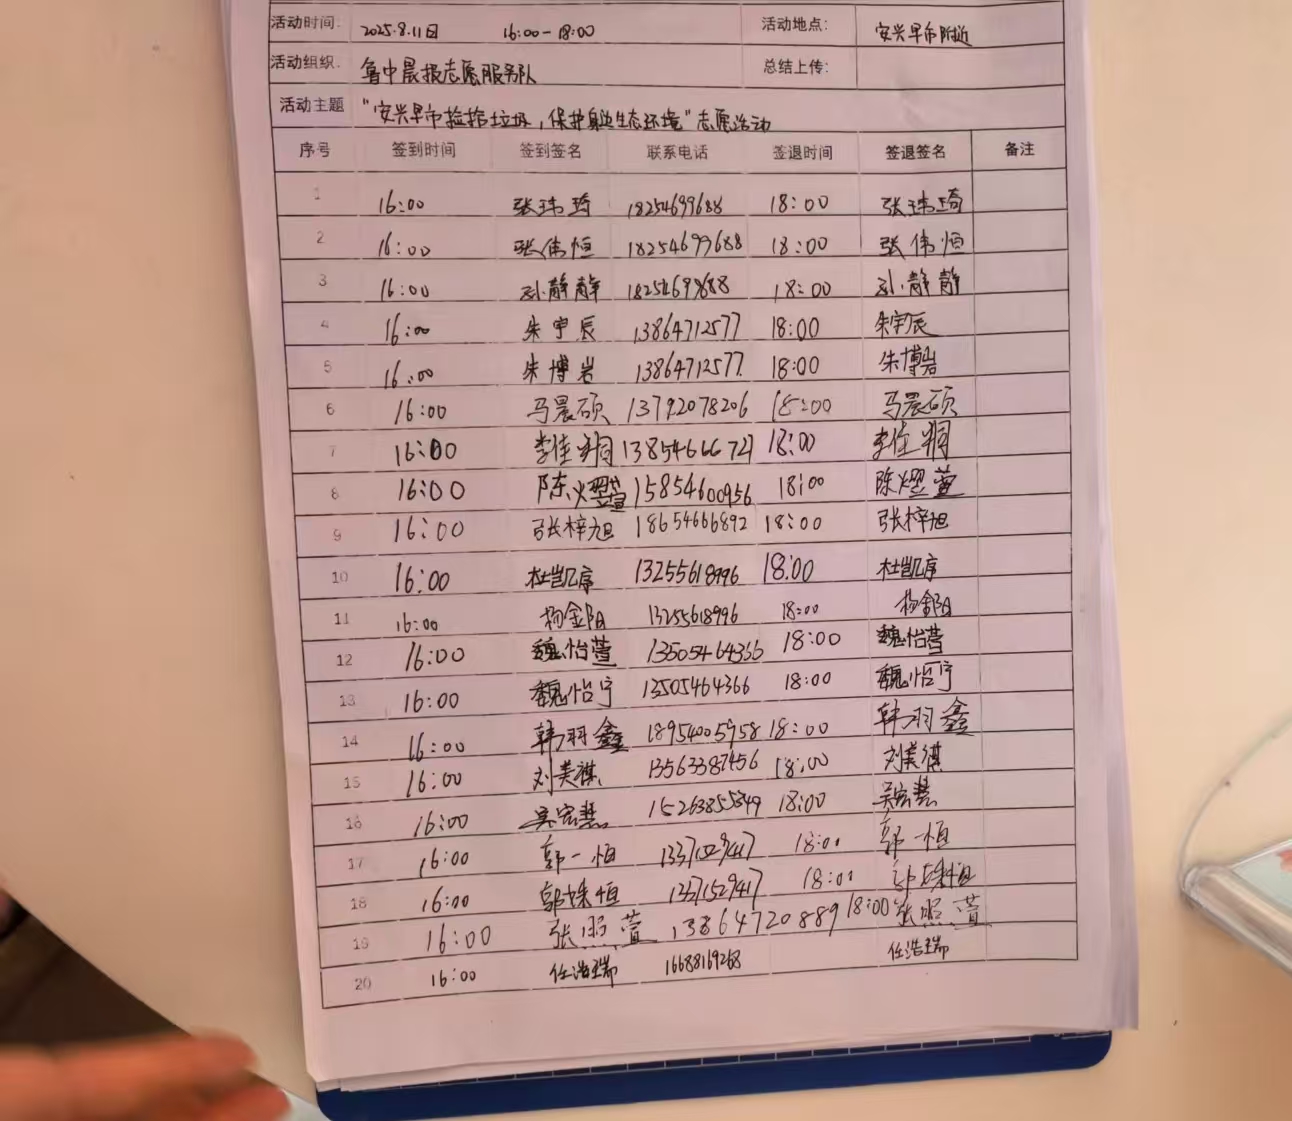 活动时间: 2025.8.11日 16:00-18:00 活动地点: 安兴早市附近
活动组织: 鲁中晨报志愿服务队 总结上传:
活动主题 “安兴早市捡拾垃圾，保护身边生态环境”志愿活动
序号 签到时间 签到签名 联系电话 签退时间 签退签名 备注
1 16:00 张玮琦 18254699688 18:00 张玮琦
2 16:00 张伟恒 18254699688 18:00 张伟恒
3 16:00 孙静静 18254699688 18:00 孙静静
4 16:00 朱宇辰 13864712577 18:00 朱宇辰
5 16:00 朱博岩 13864712577 18:00 朱博岩
6 16:00 马晨硕 13792078206 18:00 马晨硕
7 16:00 李佳翔 13854666721 18:00 李佳翔
8 16:00 陈熠萱 15854600956 18:00 陈熠萱
9 16:00 张梓旭 18654666892 18:00 张梓旭
10 16:00 杜凯序 13255618996 18:00 杜凯序
11 16:00 杨金阳 13255618996 18:00 杨金阳
12 16:00 魏怡萱 13505464366 18:00 魏怡萱
13 16:00 魏怡宁 13505464366 18:00 魏怡宁
14 16:00 韩羽鑫 18954005958 18:00 韩羽鑫
15 16:00 刘美祺 13563387456 18:00 刘美祺
16 16:00 吴宏慧 15263855349 18:00 吴宏慧
17 16:00 郭一恒 13371529417 18:00 郭一恒
18 16:00 郭姝恒 13371529417 18:00 郭姝恒
19 16:00 张照萱 13864720889 18:00 张照萱
20 16:00 任浩瑞 16688169268 任浩瑞